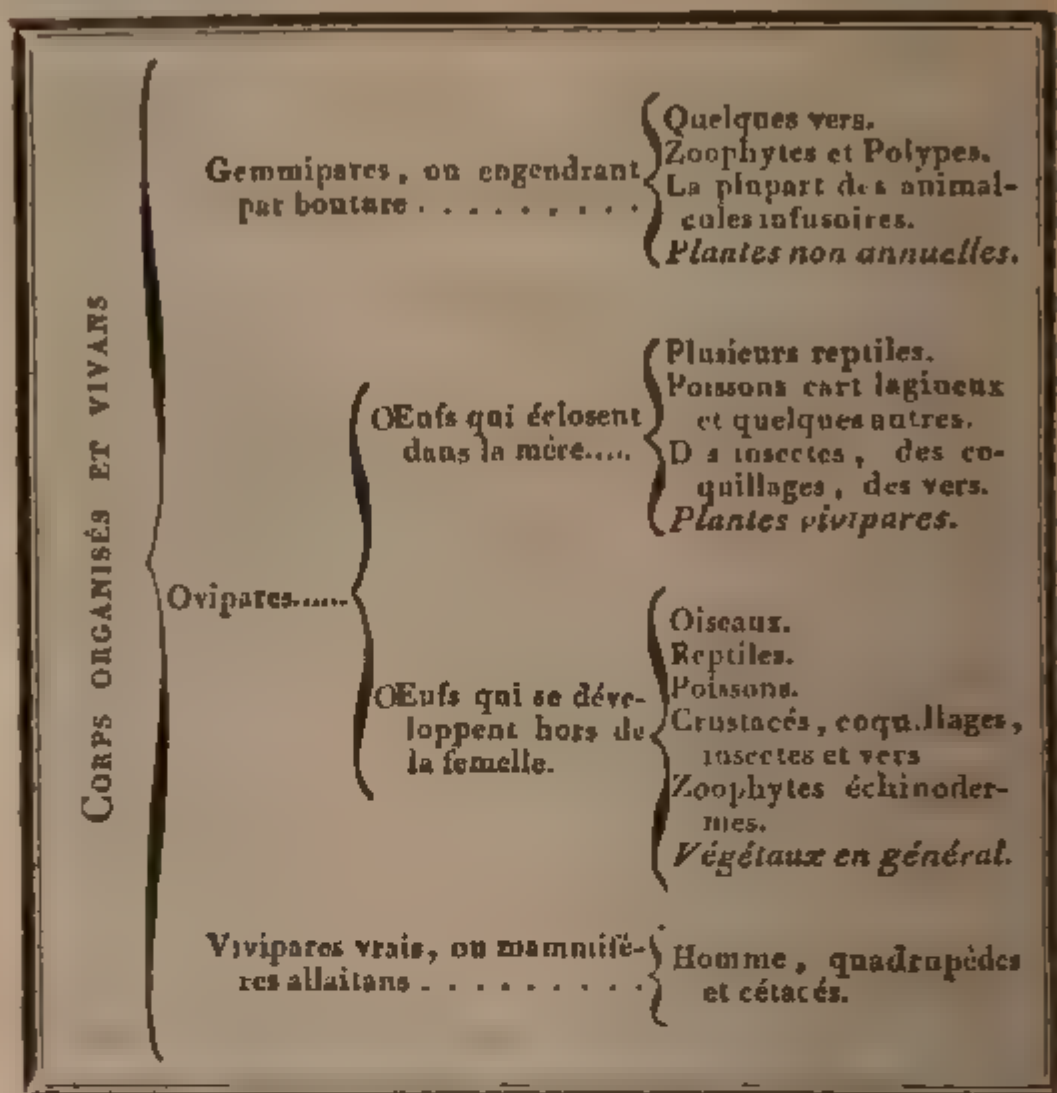 CORPS ORGANISÉS ET VIVANS
Gemmipares, ou engendrant
par bouture . . . . . . . . .
Quelques vers.
Zoophytes et Polypes.
La plupart des animal-
cules infusoires.
Plantes non annuelles.
Ovipares.....
OEufs qui éclosent
dans la mère.....
Plusieurs reptiles.
Poissons cartilagineux
et quelques autres.
Des insectes, des co-
quillages, des vers.
Plantes vivipares.
OEufs qui se déve-
loppent hors de
la femelle.
Oiseaux.
Reptiles.
Poissons.
Crustacés, coquillages,
insectes et vers
Zoophytes échinoder-
mes.
Végétaux en général.
Vivipares vrais, ou mammifè-
res allaitans . . . . . . . . .
Homme, quadrupèdes
et cétacés.